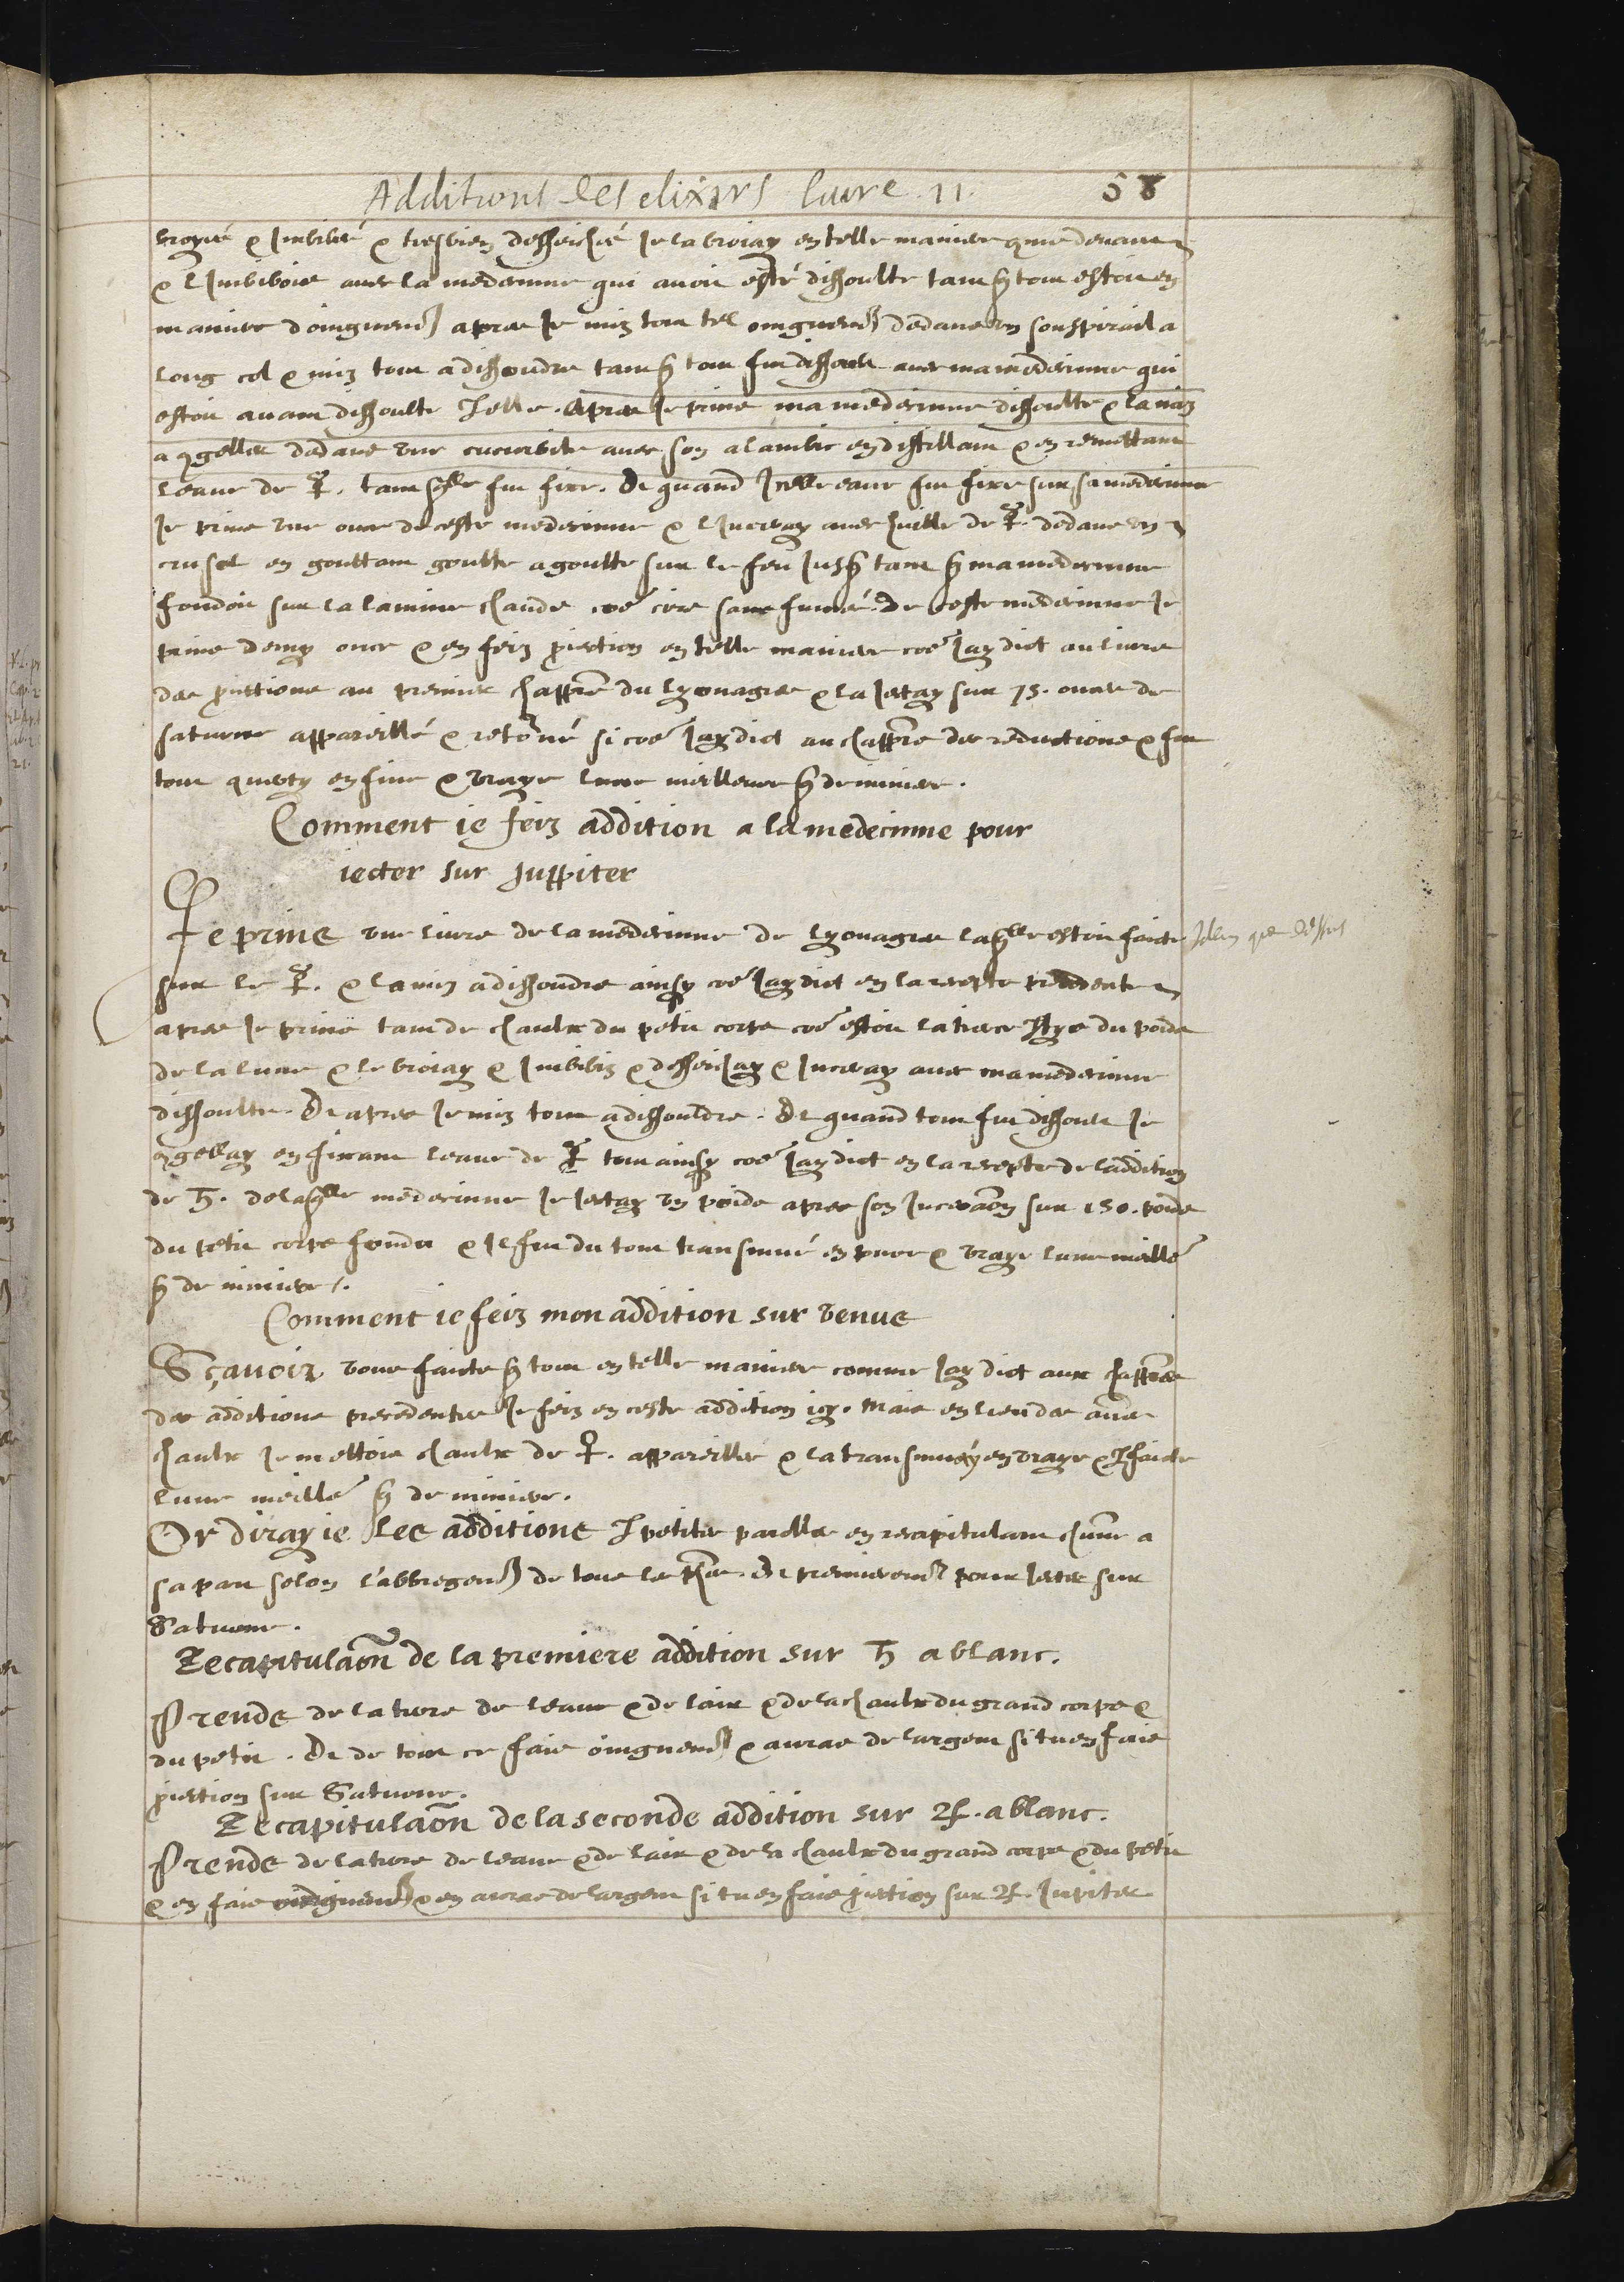 Additions des elixirs livre. 11. 58
broyé & Imbibé & tresbien desseiché Je la broiay en telle maniere que devant
& l Imbiboie avec la medecinne qui avoit esté dissoulte tant q̃ tout estoit en
maniere doinguent apres Je mis tout tel oinguent dedans un souspirail a
long col & mis tout a dissoudre tant q̃ tout fut dissoult avec ma medecinne qui
estoit avant dissoulte Icelle. Apres Je prins ma medecinne dissoulte & la mis
a 9geller dedans une cucurbite avec son alambic en distillant & en remettant
leaue de ☿. tant q̃lle fut fixe. Et quand Icelle eaue fut fixe sur sa medecinne
Je prins une once de ceste medecinne & l Inceray avec huille de ☿. dedans un
crusel en gouttant goutte a goutte sur le feu Jusq̃ tant q̃ ma medecinne
fondoit sur la lamine chaude coe cire sans fumée. De ceste medecinne Je
prins demy once & en feiz ꝓiection en telle maniere coe Jay dict au livre
des ꝓiections au premier chapp̃re du lyonagres & la Jectay sur 75. onces de
saturne appareillé & retorné si coe Jay dict au chapp̃re des reductions & fut
tout 9verty en fine & vraye lune meilleure q̃ de miniere.
Comment ie feiz addition a la medecinne pour
iecter sur Juppiter
Je prins une livre de la medecinne de lyonagres laq̃lle estoit faicte
Idem que dessus
sur le ☿. & la mis a dissoudre ainsy coe Jay dict en la recepte precedente
apres Je prins tant de chaulx du petit corps coe estoit la tierce ptye du poids
de la lune & le broiay & Imbibis & desseichay & Inceray avec ma medecinne
dissoulte. Et apres Je mis tout a dissouldre. Et quand tout fut dissoult Je
9gellay en fixant leaue de ☿ tout ainsy coe Jay dict en la recepte de laddition
de ♄. de laq̃lle medecinne Je Jectay un poids apres son Inceraõn sur 150. poids
du petit corps fondu & Il fut du tout transmué en pure & vraye lune meille
q̃ de miniere.
Comment ie feiz mon addition sur venus
Sçavoir vous faicte q̃ tout en telle maniere comme Jay dict aux chapp̃res
des additions precedentes Je feiz en ceste addition icy. Mais en lieu des aues
chaulx Je mettois chaulx de ♀. appareillée & la transmuay en vraye & pfaicte
lune meille q̃ de miniere.
Or diray ie les additions I petites parolles en recapitulant chũne a
sa part selon l'abbregent de tous les ph̃es. Et premierement pour Jecter sur
Saturne.
Recapitulaõn de la premiere addition sur ♄ a blanc.
Prends de la terre de leaue & de lair & de la chaulx du grand corps &
du petit. Et de tout ce fais oinguent & auras de largent si tu en fais
ꝓiection sur Saturne.
Recapitulaõn de la seconde addition sur ♃. a blanc.
Prends de la terre de leaue & de lair & de la chaulx du grand corps & du petit
& en fais oinguent & en auras de largent si tu en fais ꝓiection sur ♃. Jupiter